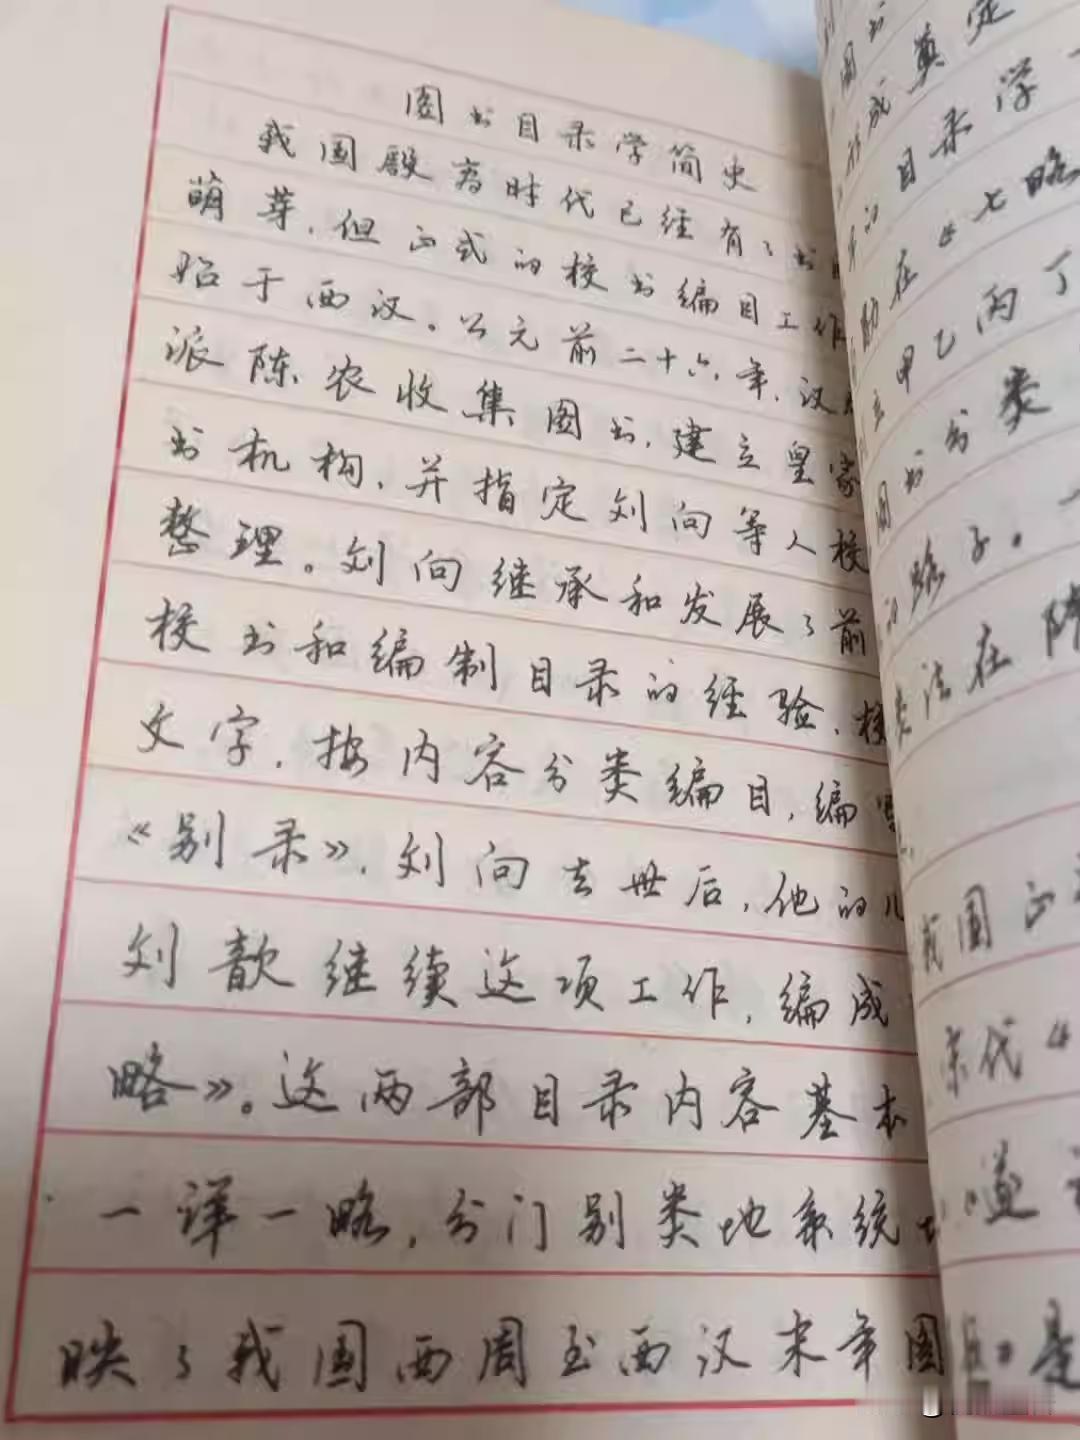 图书目录学简史
我国殷商时代已经有了书
萌芽，但正式的校书编目工作
始于西汉。公元前二十六年，汉
派陈农收集图书，建立皇家
书机构，并指定刘向等人校
整理。刘向继承和发展了前
校书和编制目录的经验，校
文字，按内容分类编目，编
《别录》，刘向去世后，他的儿
刘歆继续这项工作，编成
略》。这两部目录内容基本
一详一略，分门别类地系统地
映了我国西周至西汉末年图
图书
成奠定
目录学
勖在《七略
立甲乙丙丁
图书分类
的路子。一
类法在
我国正
宋代《
《遂
是